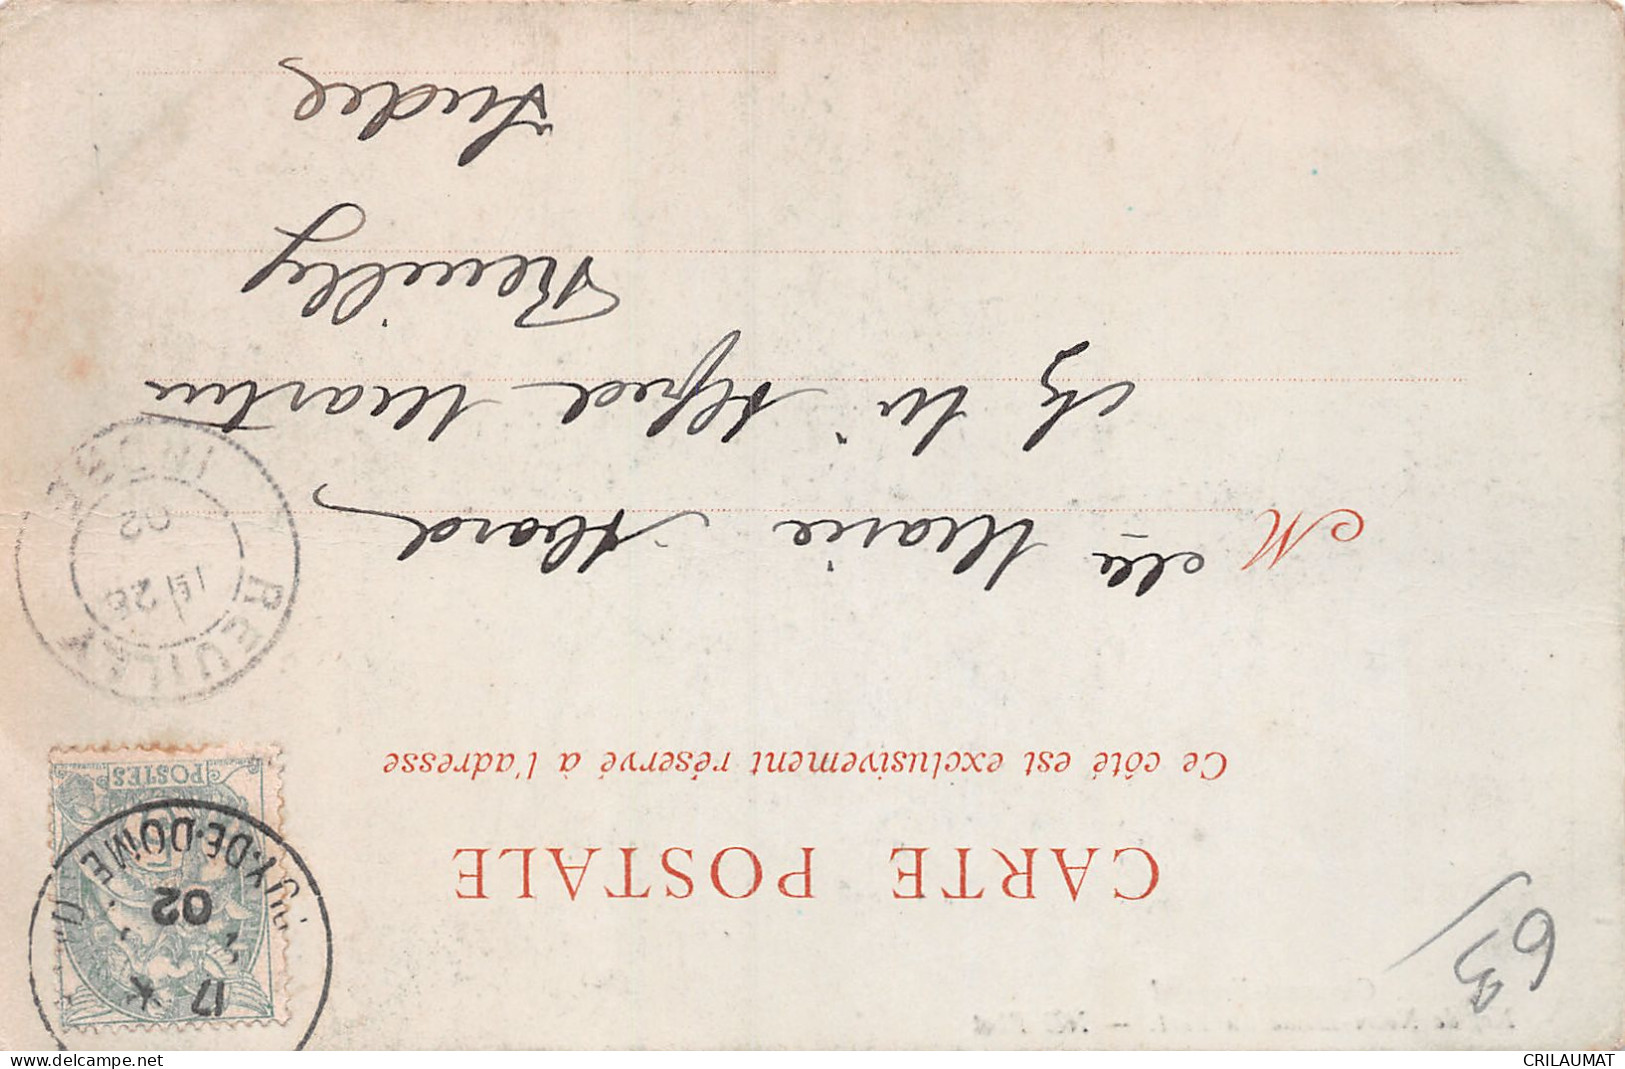 CARTE POSTALE
Ce côté est exclusivement réservé à l'adresse
M elle Marie Allard
chez Mr Alfred Martin
Reuilly
Indre
POSTES
17
02
PUY-DE-DOME
REUILLY
INDRE
02
63
CRILAUMAT